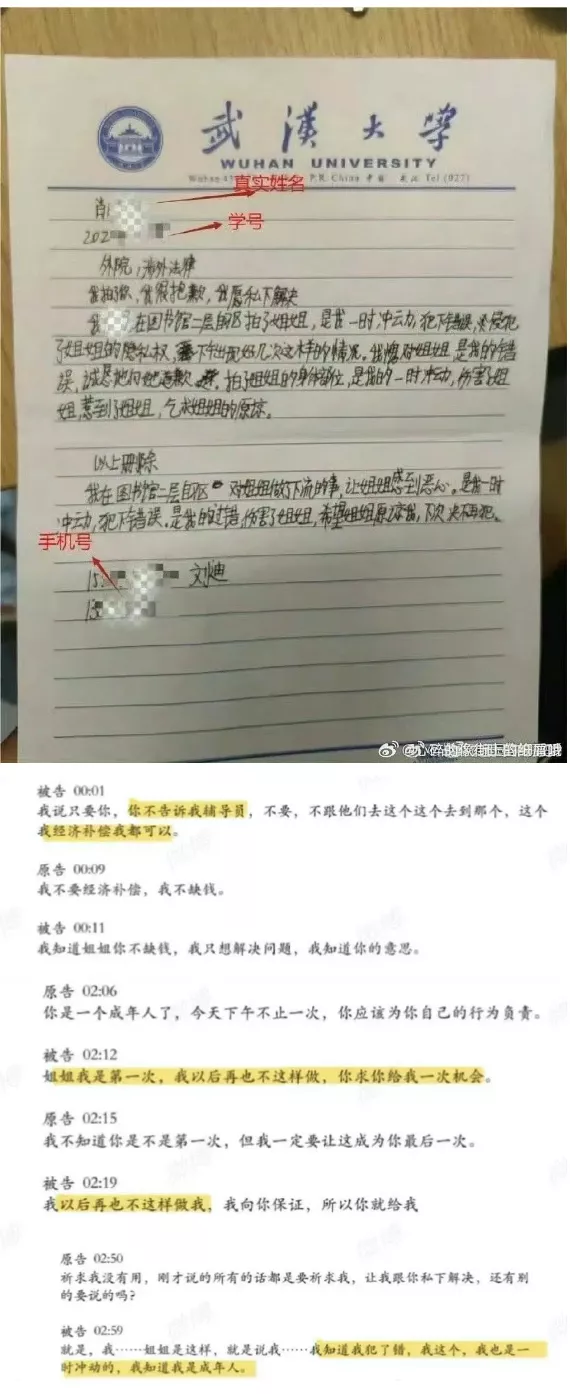 武漢大學
WUHAN UNIVERSITY
Wuhan P.R. China 中国 武汉 Tel (027)
真实姓名
肖
202
学号
外院，涉外法律
我拍了你，我很抱歉，我愿私下解决
我 在图书馆二层自习区拍了姐姐，是我一时冲动，犯下错误，
了姐姐的隐私权， 下午出现好几次这样的情况。我愧对姐姐，是我的错
误，诚恳地向她道歉 ，拍了姐姐的身体部位，是我的一时冲动，伤害了姐
姐，惹到了姐姐，乞求姐姐的原谅。
以上删除
我在图书馆二层自习区 对姐姐做了下流的事，让姐姐感到恶心。是我一时
冲动，犯下错误。是我的过错，伤害了姐姐，希望姐姐原谅我，下次决不再犯。
手机号
15
刘迪
被告 00:01
我说只要你，你不告诉我辅导员，不要，不跟他们去这个这个去到那个，这个
我经济补偿我都可以。
原告 00:09
我不要经济补偿，我不缺钱。
被告 00:11
我知道姐姐你不缺钱，我只想解决问题，我知道你的意思。
原告 02:06
你是一个成年人了，今天下午不止一次，你应该为你自己的行为负责。
被告 02:12
姐姐我是第一次，我以后再也不这样做，你求你给我一次机会。
原告 02:15
我不知道你是不是第一次，但我一定要让这成为你最后一次。
被告 02:19
我以后再也不这样做我，我向你保证，所以你就给我
原告 02:50
祈求我没有用，刚才说的所有的话都是要祈求我，让我跟你私下解决，还有别
的要说的吗？
被告 02:59
就是，我……姐姐是这样，就是说我……我知道我犯了错，我这个，我也是一
时冲动的，我知道我是成年人。